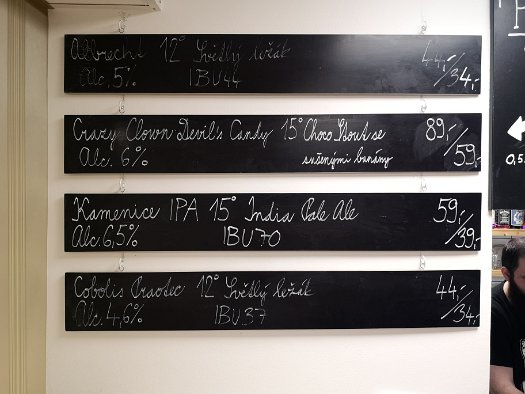 Albrecht 12° Světlý ležák 44,-/34,-
Alc. 5% IBU 44
Crazy Clown Devil's Candy 15° Choco Stout se 89,-/59,-
Alc. 6% sušenými banány
Kamenice IPA 15° India Pale Ale 59,-/39,-
Alc. 6,5% IBU 70
Cobolis Praotec 12° Světlý ležák 44,-/34,-
Alc. 4,6% IBU 37
0,5